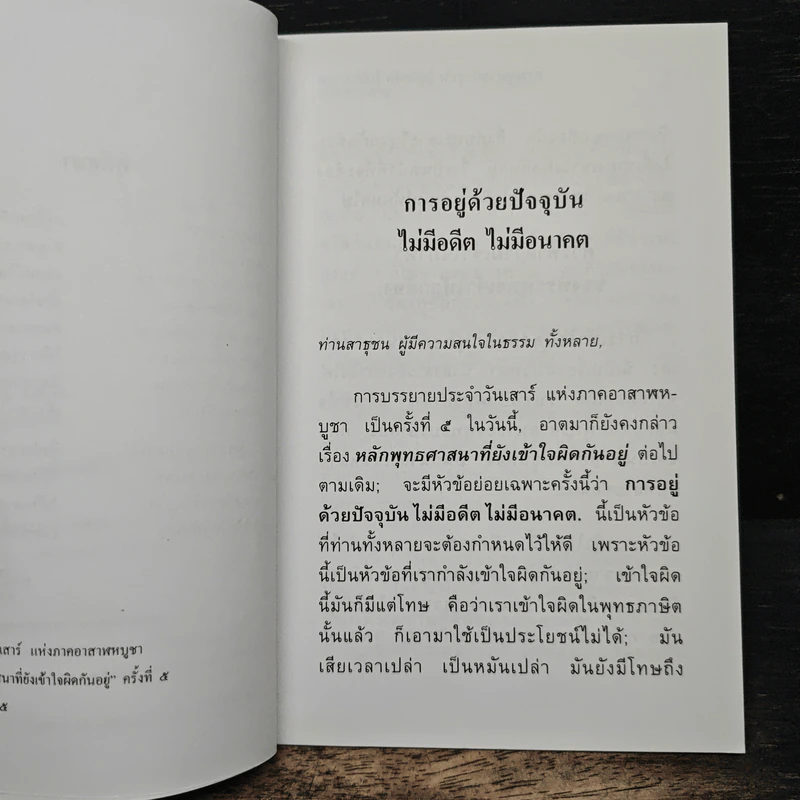 เสาร์ แห่งภาคอาสาฬหบูชา
นาที่ยังเข้าใจผิดกันอยู่" ครั้งที่ ๕
๕
การอยู่ด้วยปัจจุบัน
ไม่มีอดีต ไม่มีอนาคต
ท่านสาธุชน ผู้มีความสนใจในธรรม ทั้งหลาย,
การบรรยายประจำวันเสาร์ แห่งภาคอาสาฬห-
บูชา เป็นครั้งที่ ๕ ในวันนี้, อาตมาก็ยังคงกล่าว
เรื่อง หลักพุทธศาสนาที่ยังเข้าใจผิดกันอยู่ ต่อไป
ตามเดิม; จะมีหัวข้อย่อยเฉพาะครั้งนี้ว่า การอยู่
ด้วยปัจจุบัน ไม่มีอดีต ไม่มีอนาคต. นี้เป็นหัวข้อ
ที่ท่านทั้งหลายจะต้องกำหนดไว้ให้ดี เพราะหัวข้อ
นี้เป็นหัวข้อที่เรากำลังเข้าใจผิดกันอยู่; เข้าใจผิด
นี้มันก็มีแต่โทษ คือว่าเราเข้าใจผิดในพุทธภาษิต
นั้นแล้ว ก็เอามาใช้เป็นประโยชน์ไม่ได้; มัน
เสียเวลาเปล่า เป็นหมันเปล่า มันยังมีโทษถึง